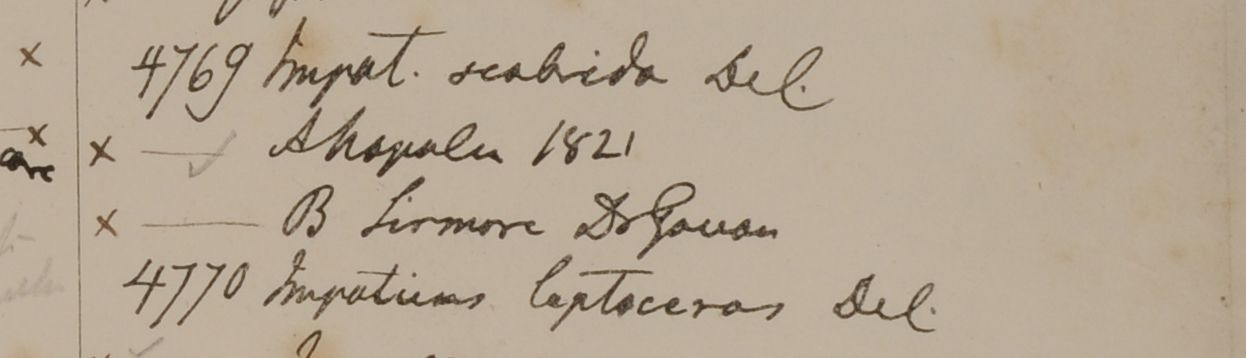 4769 Impat. scabrida Del.
A Napalu 1821
B Sirmore Dr Govan
4770 Impatiens leptoceras Del.